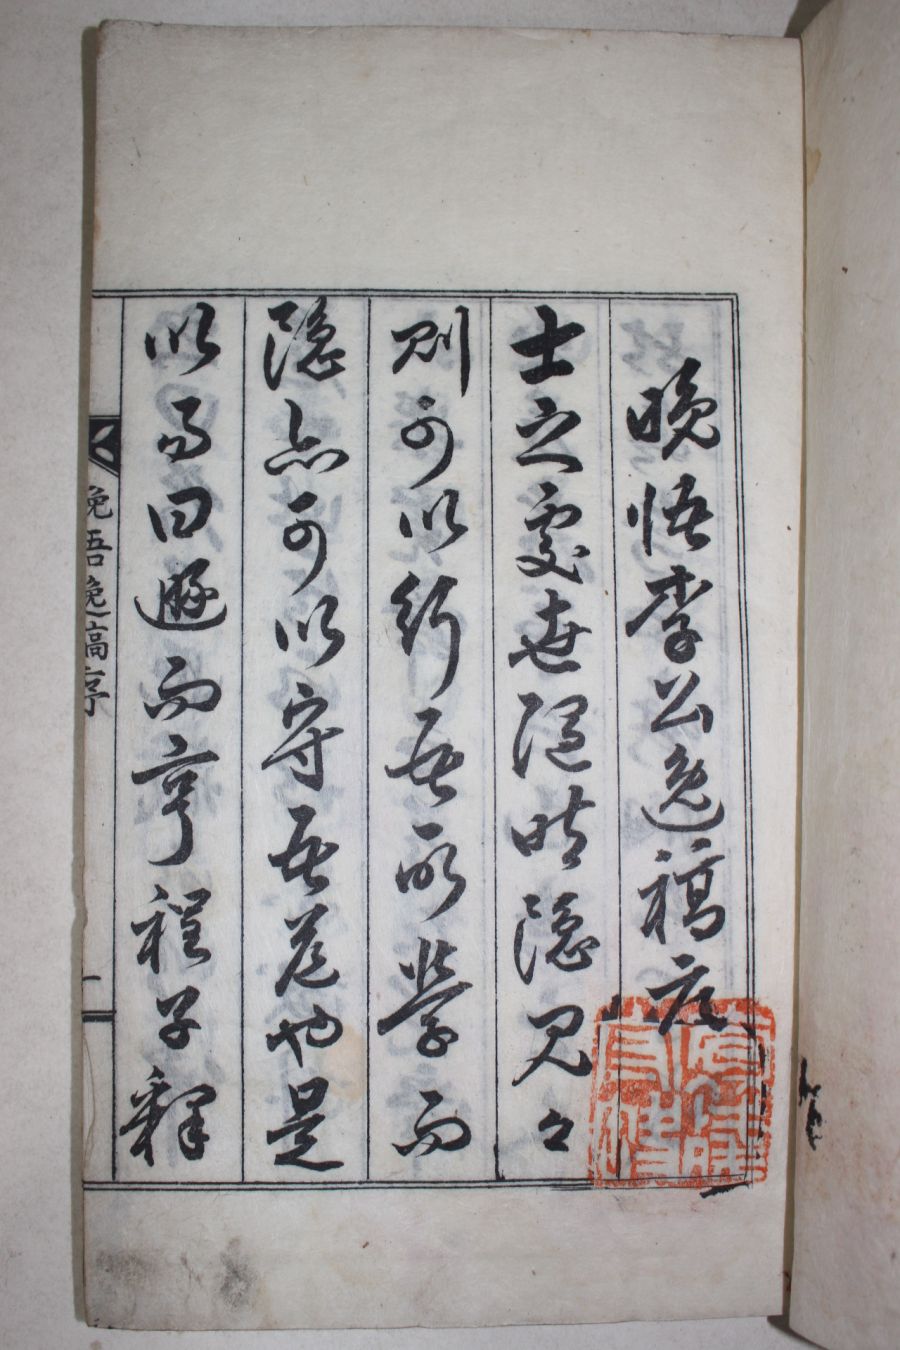 晚悟李公逸稿序
士之處世隨時隱見々
則可以行吾所學而
隱亦可以守吾道也是
以易曰遯而亨程子釋
晚悟逸稿序
一